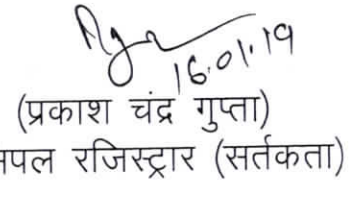 16.01.19
(प्रकाश चंद्र गुप्ता)
रजिस्ट्रार (सर्तकता)